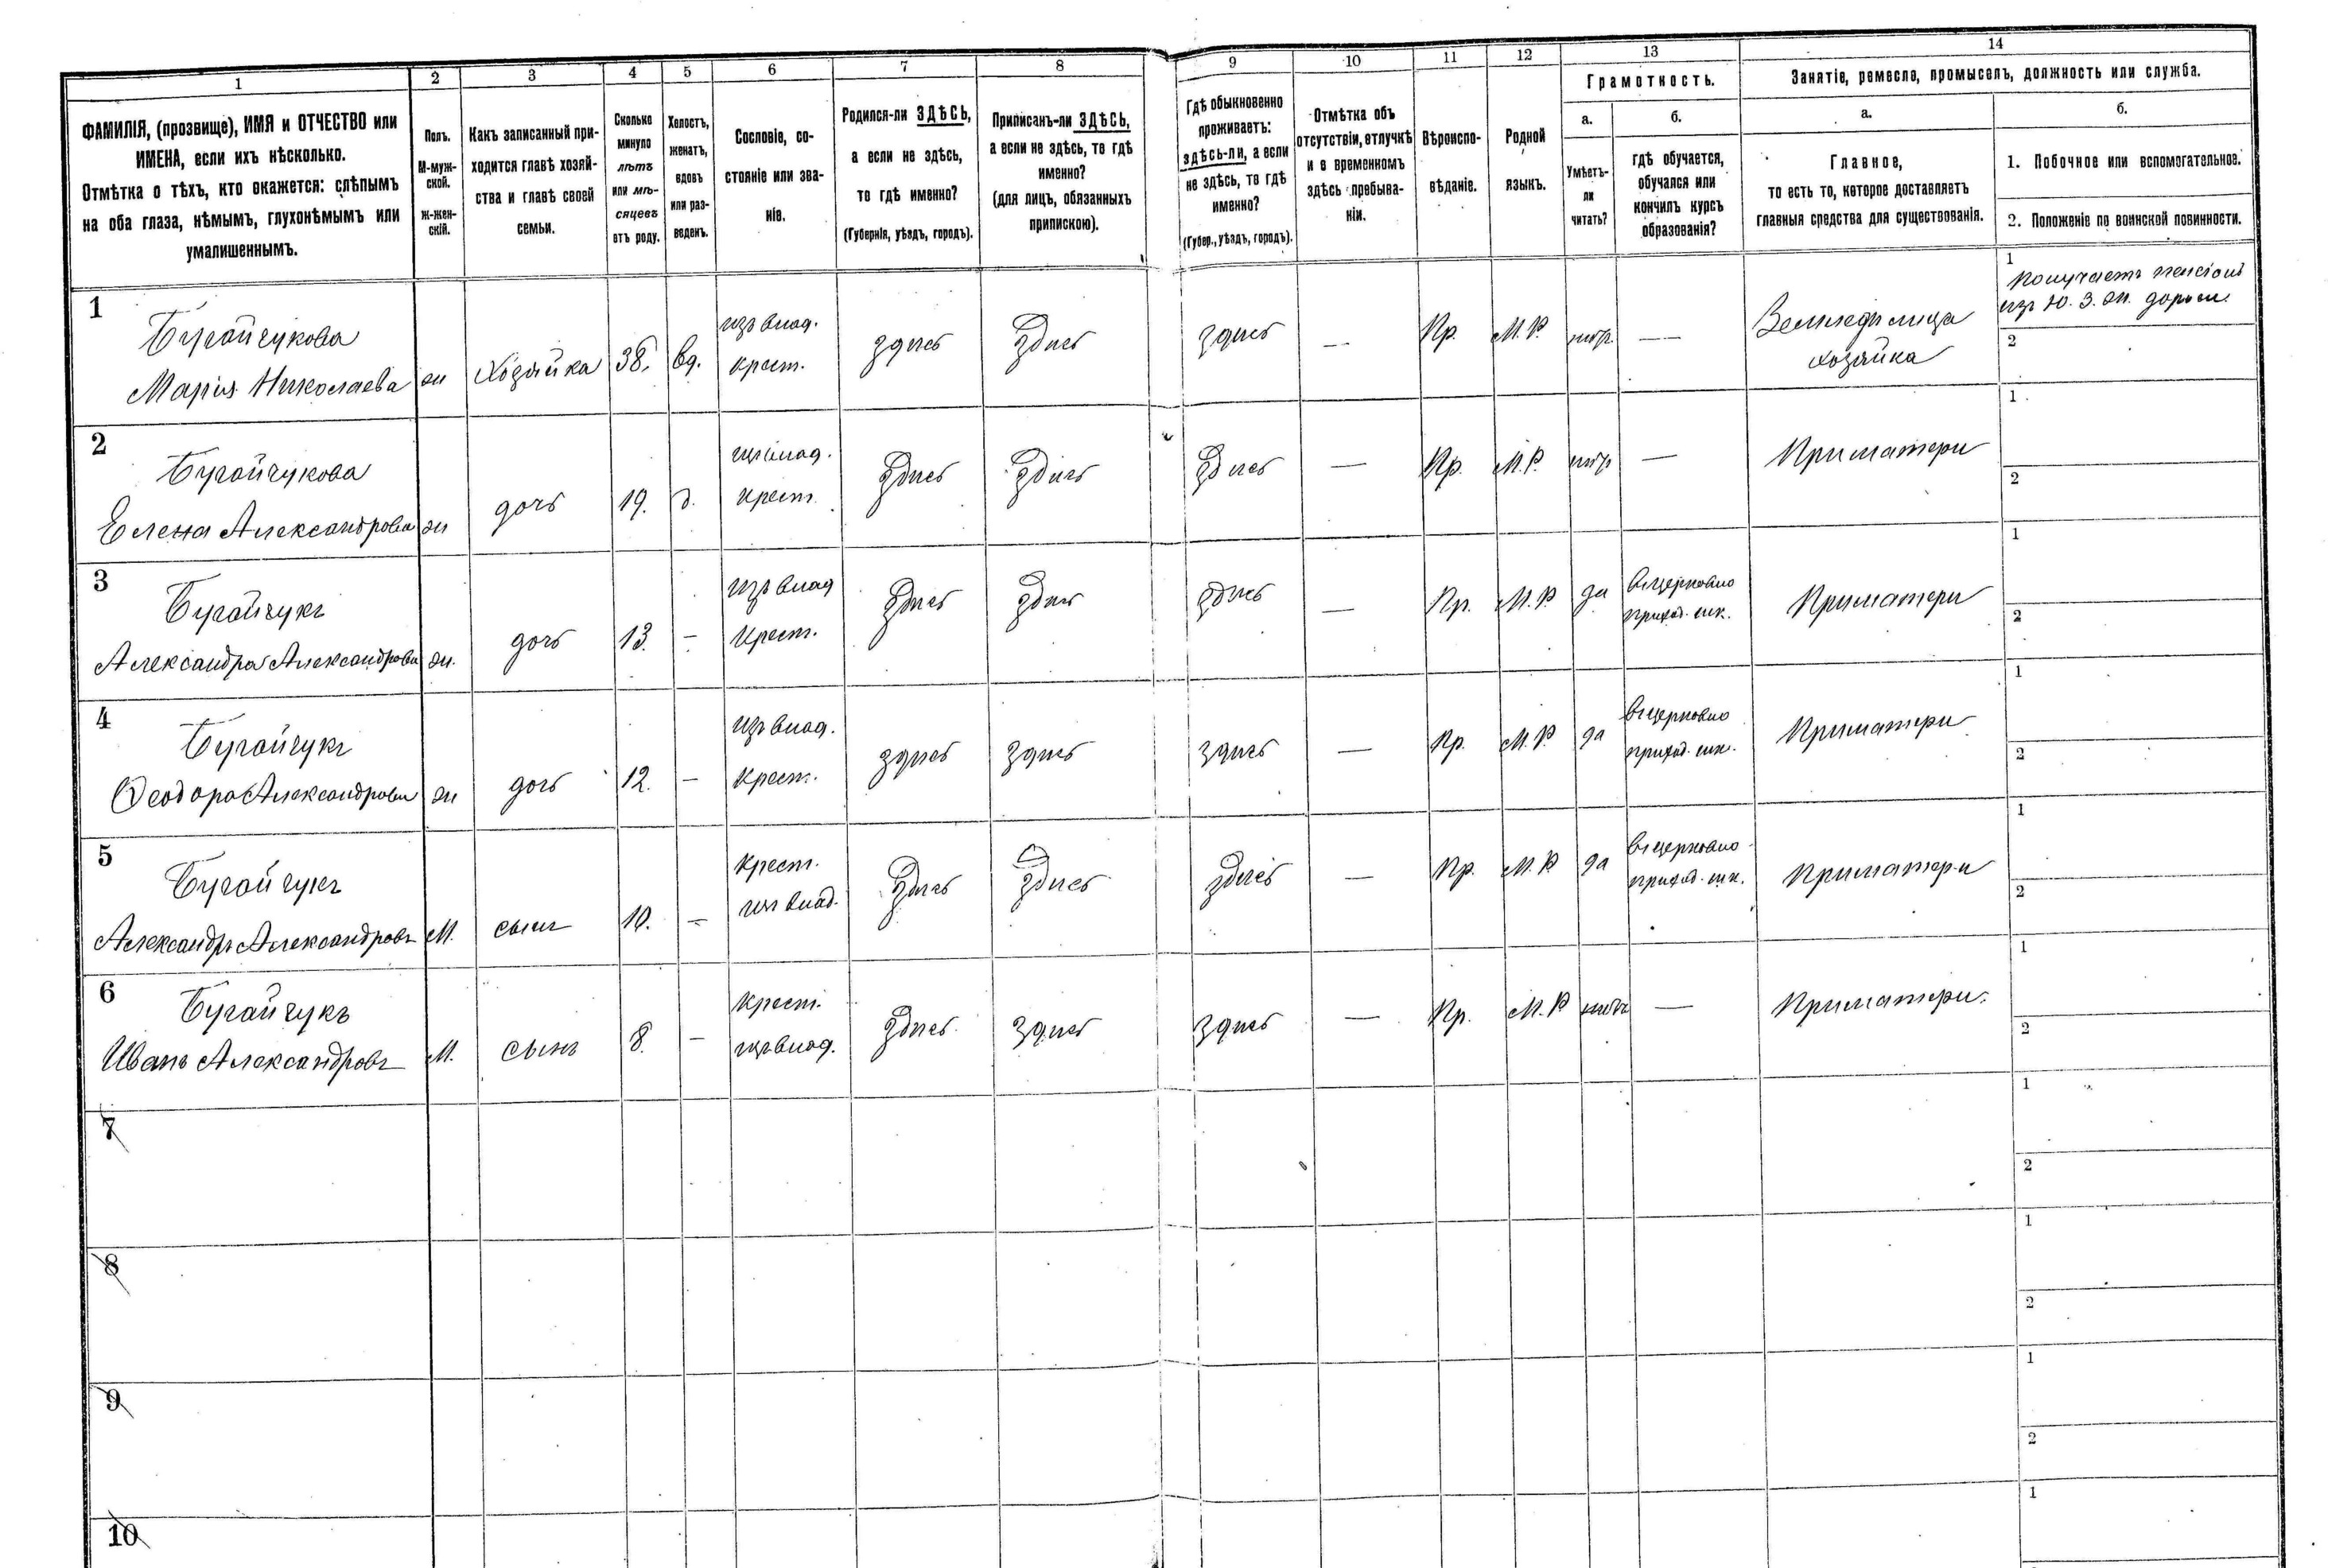 1 2 3 4 5 6 7 8 9 10 11 12 13 14
ФАМИЛІЯ, (прозвище), ИМЯ и ОТЧЕСТВО или
ИМЕНА, если ихъ нѣсколько.
Отмѣтка о тѣхъ, кто окажется: слѣпымъ
на оба глаза, нѣмымъ, глухонѣмымъ или
умалишеннымъ.
Полъ.
М-муж-
ской.
Ж-жен-
скій.
Какъ записанный при-
ходится главѣ хозяй-
ства и главѣ своей
семьи.
Сколько
минуло
лѣтъ
или мѣ-
сяцевъ
отъ роду.
Холостъ,
женатъ,
вдовъ
или раз-
веденъ.
Сословіе, со-
стояніе или зва-
ніе.
Родился-ли ЗДѢСЬ,
а если не здѣсь,
то гдѣ именно?
(Губернія, уѣздъ, городъ).
Приписанъ-ли ЗДѢСЬ,
а если не здѣсь, то гдѣ
именно?
(для лицъ, обязанныхъ
припискою).
Гдѣ обыкновенно
проживаетъ:
здѣсь-ли, а если
не здѣсь, то гдѣ
именно?
(Губер., уѣздъ, городъ).
Отмѣтка объ
отсутствіи, отлучкѣ
и о временномъ
здѣсь пребыва-
ніи.
Вѣроиспо-
вѣданіе.
Родной
языкъ.
Грамотность.
а.
Умѣетъ-
ли
читать?
б.
гдѣ обучается,
обучался или
кончилъ курсъ
образованія?
Занятіе, ремесло, промыселъ, должность или служба.
а.
Главное,
то есть то, которое доставляетъ
главныя средства для существованія.
б.
1. Побочное или вспомогательное.
2. Положеніе по воинской повинности.
1
Бугайчукова
Марія Николаева
ж
хозяйка
38.
вд.
изъ влад.
крест.
здѣсь
здѣсь
здѣсь
—
Пр.
М. Р.
нѣтъ
—
Земледѣлица
хозяйка
1
Получаетъ пенсіонъ
изъ Ю. З. ж. дороги.
2
2
Бугайчукова
Елена Александрова
ж
дочь
19.
д.
изъ влад.
крест.
здѣсь
здѣсь
здѣсь
—
Пр.
М. Р.
нѣтъ
—
При матери
1
2
3
Бугайчукъ
Александра Александрова
ж.
дочь
13.
—
изъ влад
крест.
здѣсь
здѣсь
здѣсь
—
Пр.
М. Р.
да
въ церковно
приход. шк.
При матери
1
2
4
Бугайчукъ
Ѳеодора Александрова
ж
дочь
12.
—
изъ влад.
крест.
здѣсь
здѣсь
здѣсь
—
Пр.
М. Р.
да
въ церковно
приход. шк.
При матери
1
2
5
Бугайчукъ
Александръ Александровъ
М.
сынъ
10.
—
крест.
изъ влад.
здѣсь
здѣсь
здѣсь
—
Пр.
М. Р
да
въ церковно
приход. шк.
При матери
1
2
6
Бугайчукъ
Иванъ Александровъ
М.
сынъ
8.
—
крест.
изъ влад.
здѣсь
здѣсь
здѣсь
—
Пр.
М. Р
нѣтъ
—
При матери.
1
2
7
1
2
8
1
2
9
1
2
10
1